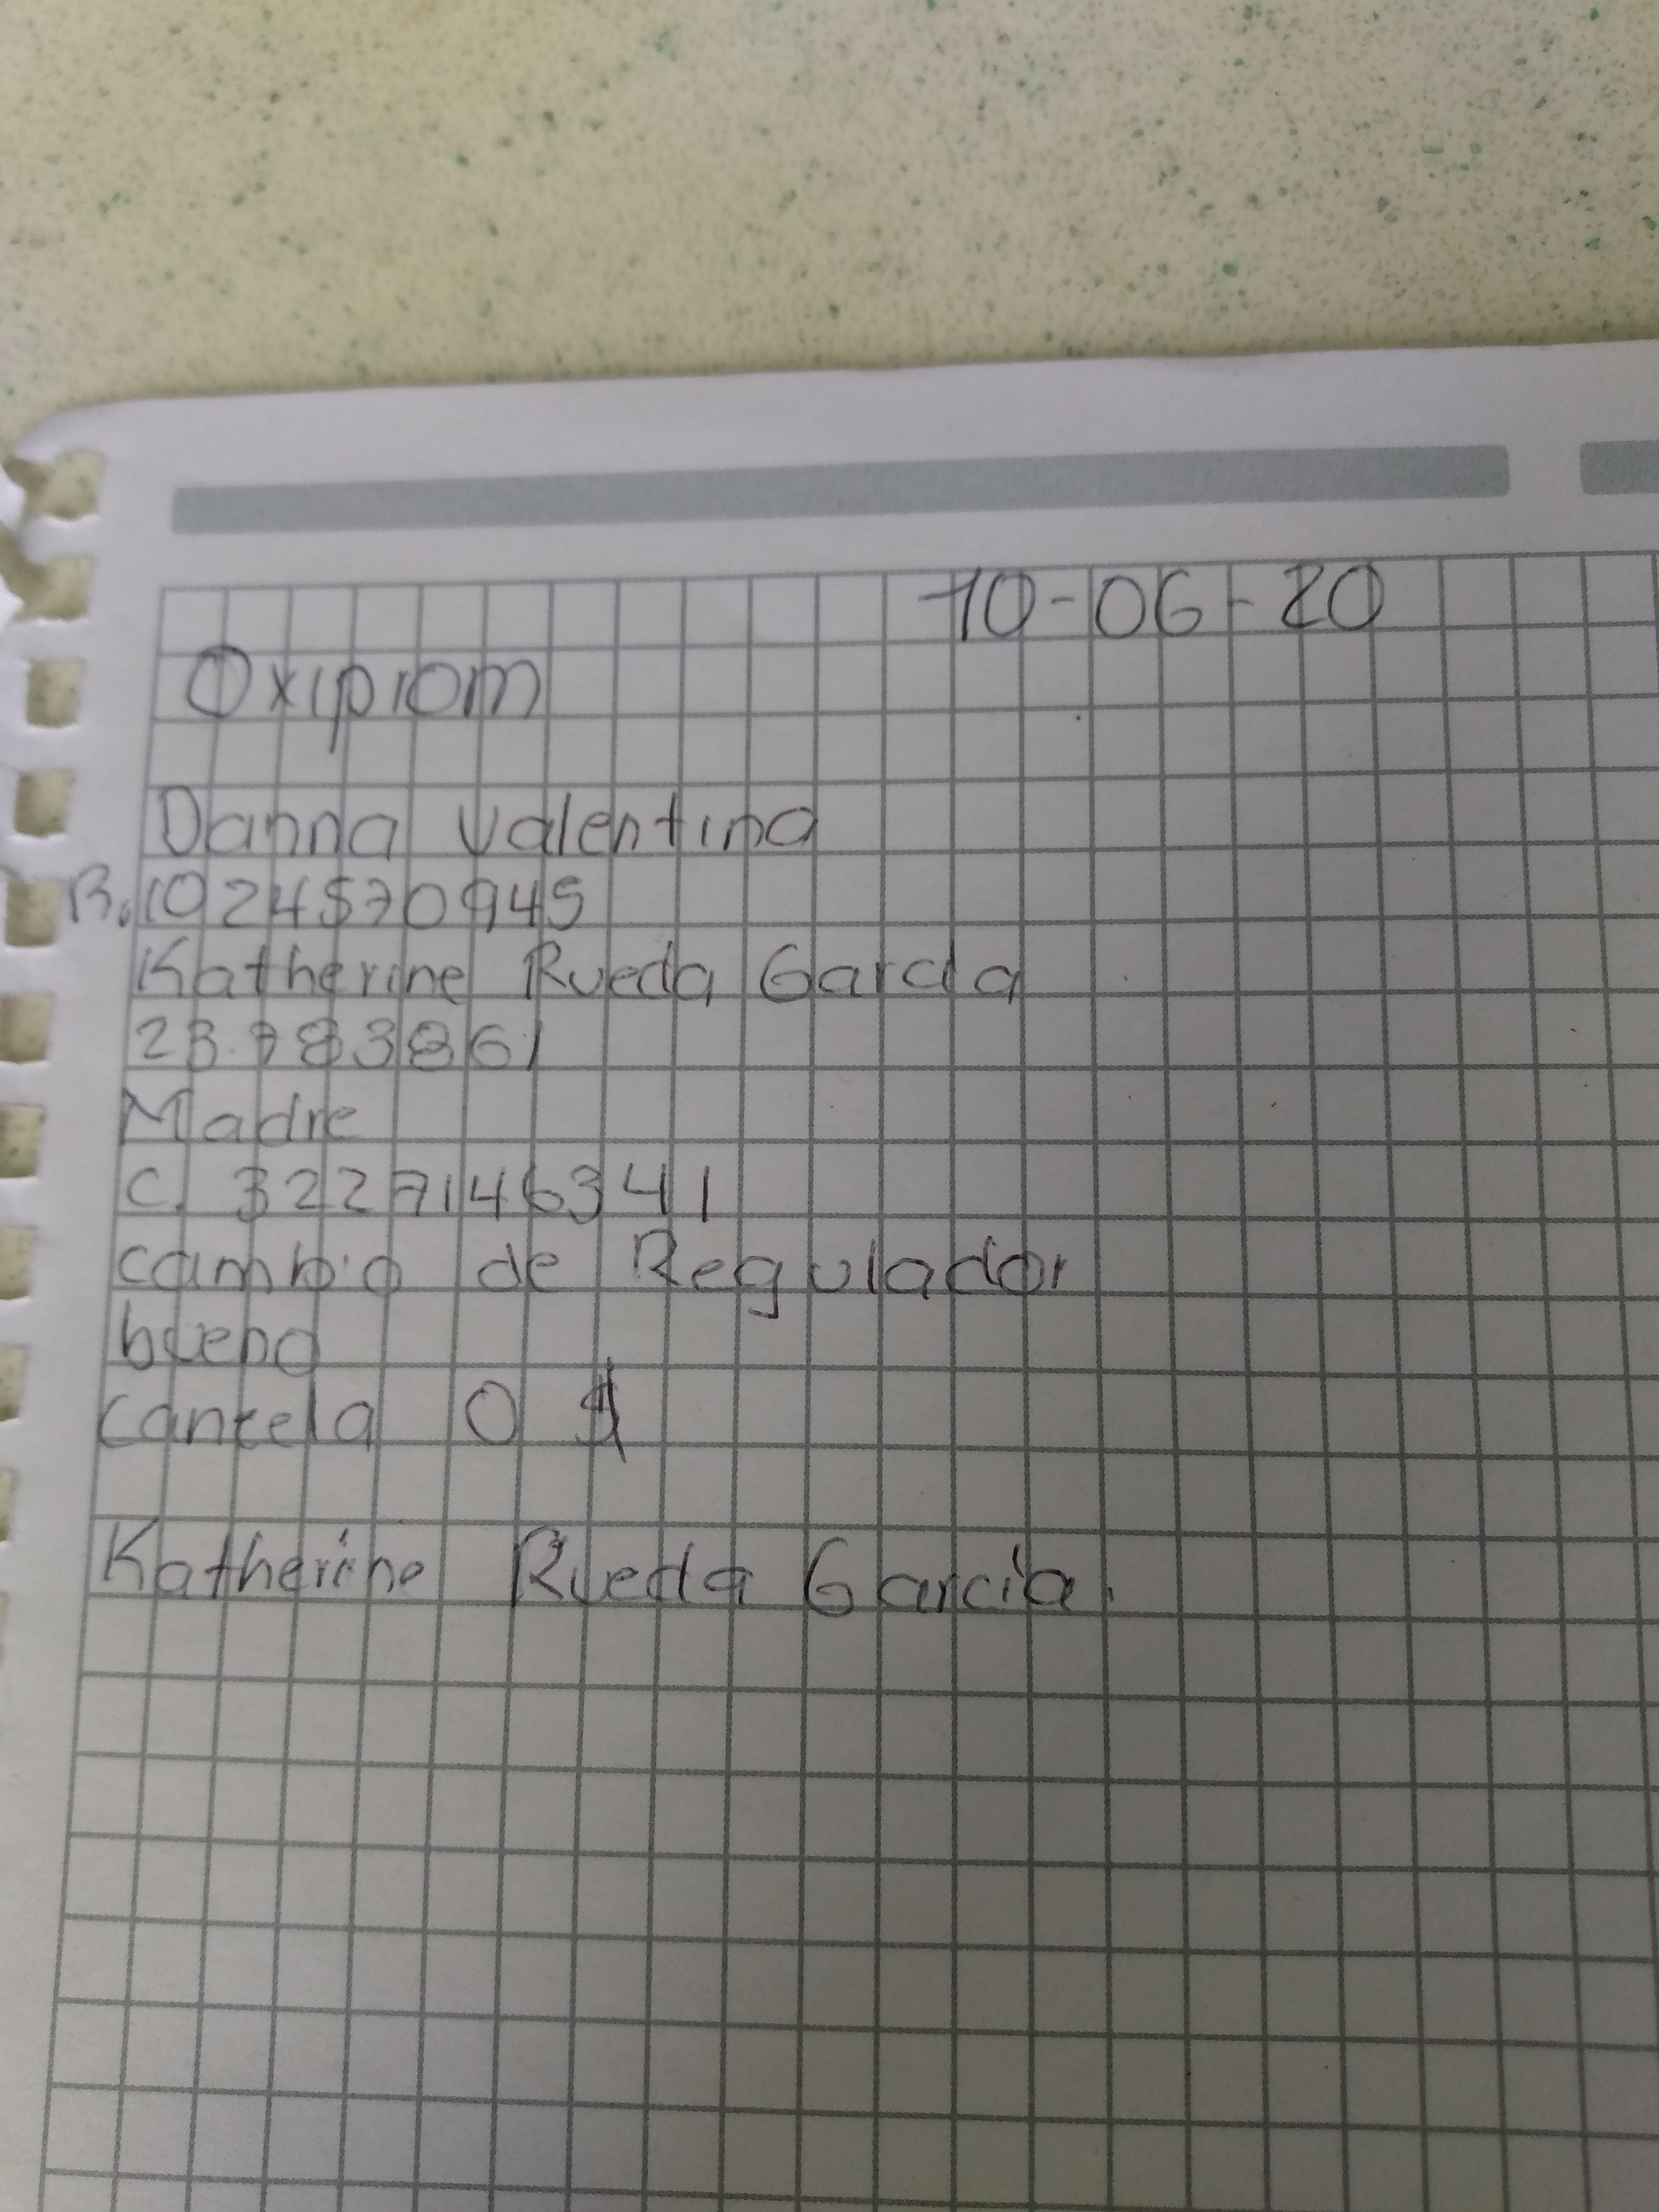 10-06-20
Oxiprom
Danna Valentina
R. 1024570945
Katherine Rueda Garcia
23.783861
Madre
C. 3227146341
cambio de Regulador
bueno
cancela 0 $
Katherine Rueda Garcia.